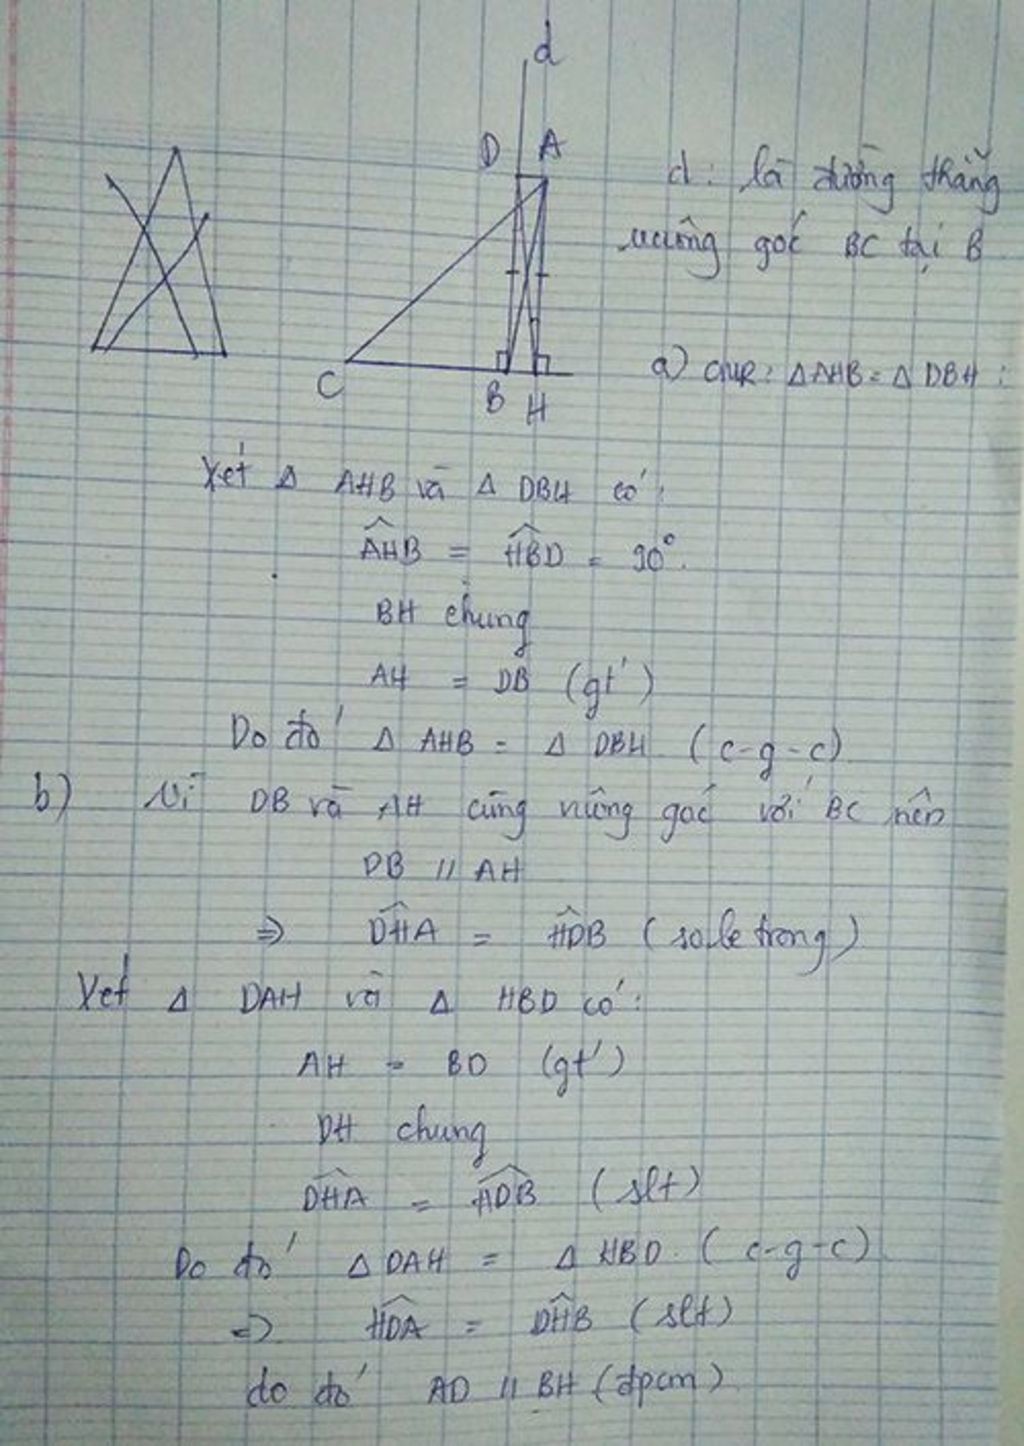 d
D A
C
B H
d: là đường thẳng
vuông góc BC tại B
a) CMR: Δ AHB = Δ DBH:
Xét Δ AHB và Δ DBH có:
AHB = HBD = 90°.
BH chung
AH = DB (gt)
Do đó Δ AHB = Δ DBH (c-g-c)
b) Vì DB và AH cùng vuông góc với BC nên
DB // AH
=> DHA = HDB (so le trong)
Xét Δ DAH và Δ HBD có:
AH = BD (gt)
DH chung
DHA = HDB (slt)
Do đó Δ DAH = Δ HBD. (c-g-c)
=> HDA = DHB (slt)
do đó AD // BH (đpcm)